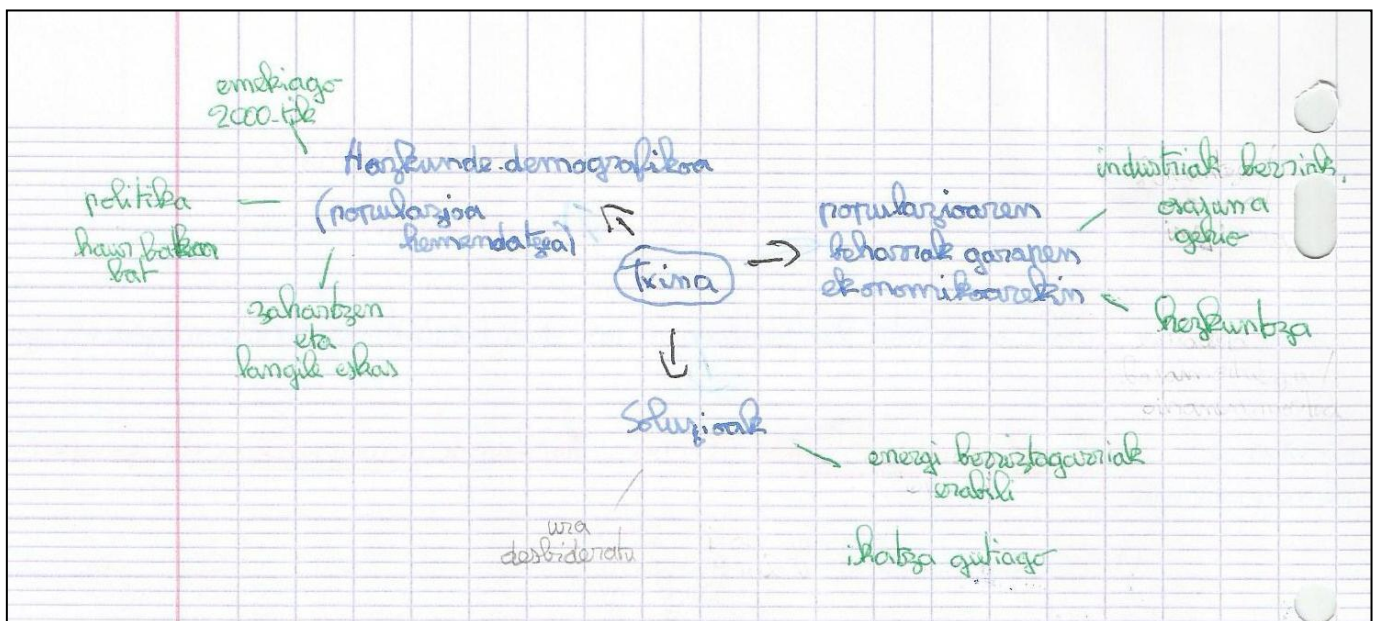 emekiago
2000-tik
Hazkunde demografikoa
(populazioa
hemendatzea)
politika
haur bakar
bat
zahartzen
eta
langile eskas
Txina
populazioaren
beharrak garapen
ekonomikoarekin
industriak berriak,
osasuna
hezkuntza
Soluzioak
ura
desbideratu
energi berriztagarriak
erabili
ikatza gutiago